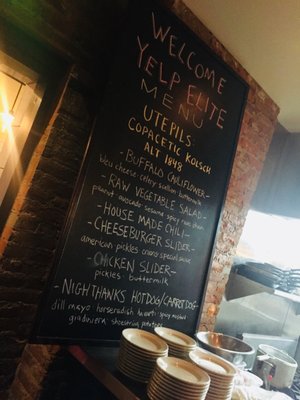 WELCOME
YELP ELITE
MENU
UTEPILS:
COPACETIC KOLSCH
ALT 1848
- BUFFALO CAULIFLOWER -
bleu cheese celery scallion buttermilk
- RAW VEGETABLE SALAD -
peanut avocado sesame spicy
- HOUSE MADE CHILI -
- CHEESEBURGER SLIDER -
american pickles onions special sauce
- CHICKEN SLIDER -
pickles buttermilk
- NIGHTHANKS HOTDOG/CARROT DOG -
dill mayo horseradish havarti spicy mustard
giardiniera shoestring potatoes